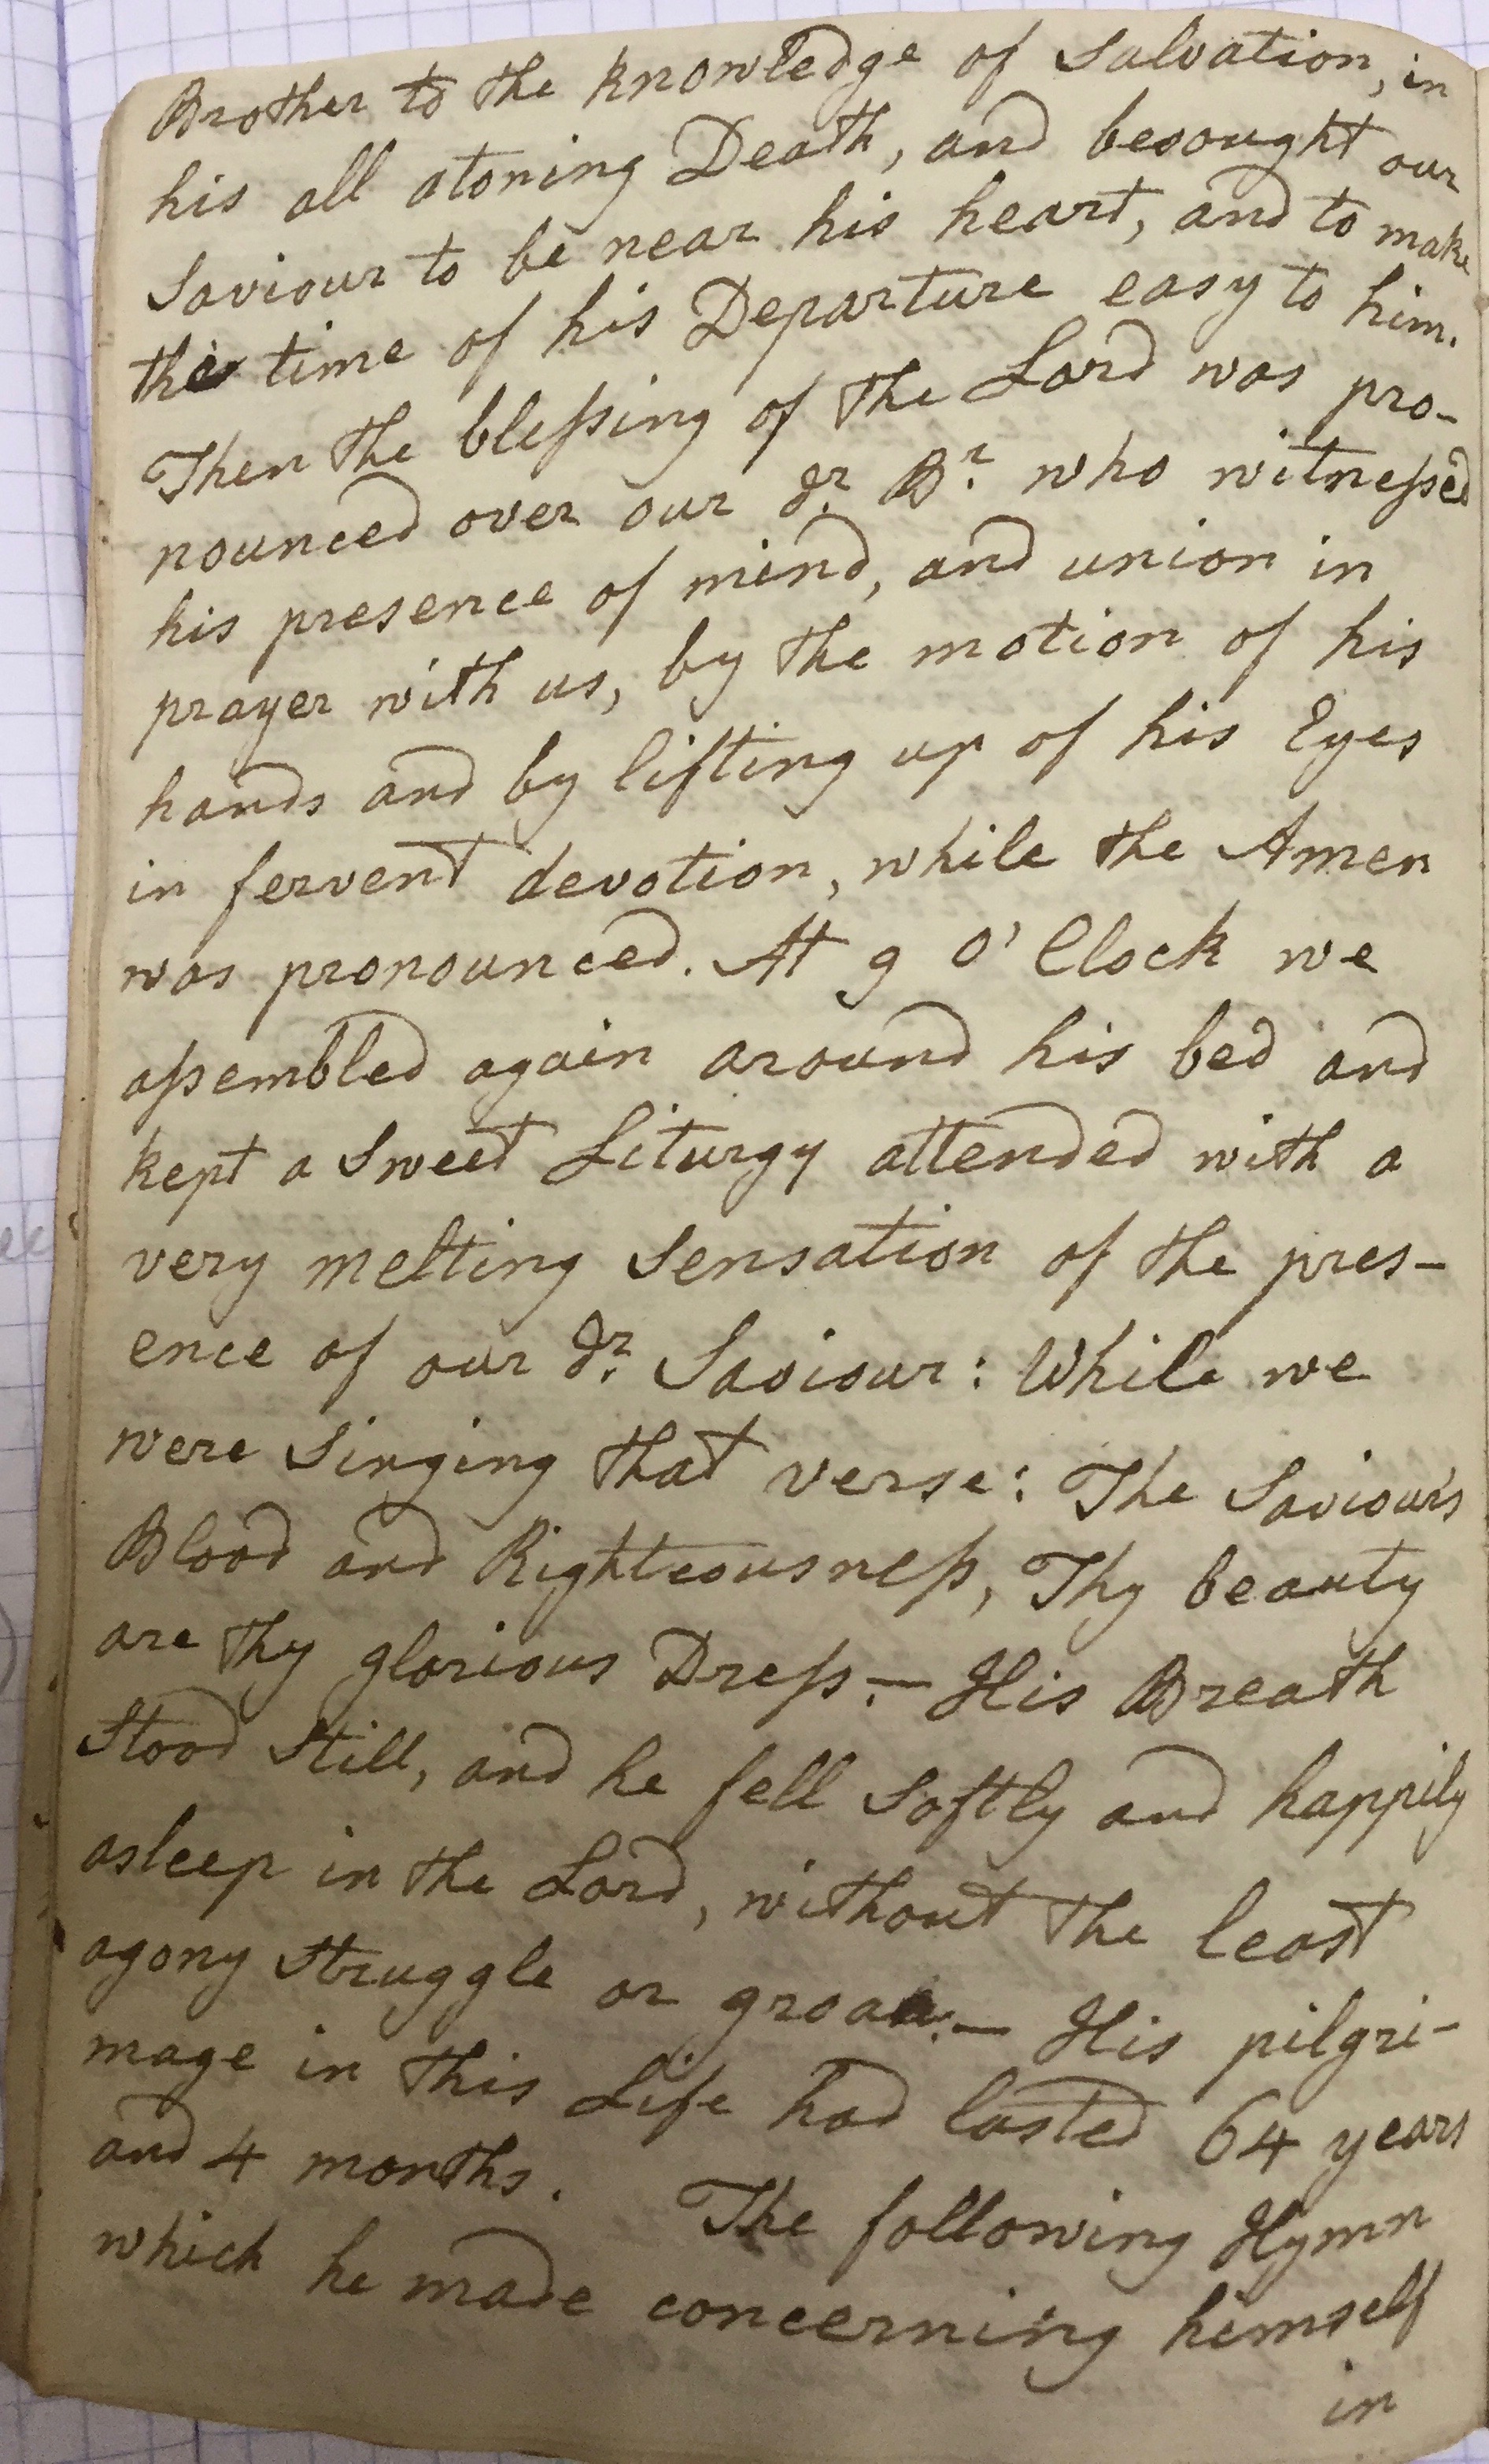 Brother to the knowledge of Salvation, in
his all atoning Death, and besought our
Saviour to be near his heart, and to make
the time of his Departure easy to him.
Then the blessing of the Lord was pro-
nounced over our dr. Br. who witnessed
his presence of mind, and union in
prayer with us, by the motion of his
hands and by lifting up of his Eyes
in fervent devotion, while the Amen
was pronounced. At 9 O'Clock we
assembled again around his bed and
kept a Sweet Liturgy attended with a
very melting Sensation of the pres-
ence of our dr. Saviour: While we
were Singing that verse: The Saviour's
Blood and Righteousness, Thy beauty
are thy glorious Dress.— His Breath
Stood Still, and he fell Softly and happily
asleep in the Lord, without the least
agony Struggle or groan.— His pilgri-
mage in this Life had lasted 64 years
and 4 months. The following Hymn
which he made concerning himself
in